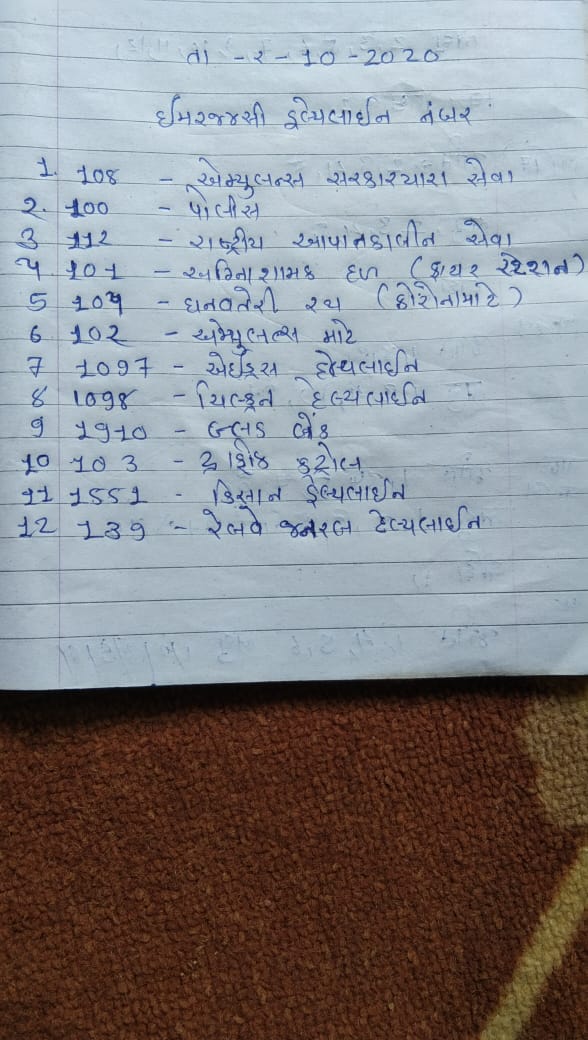 તા - ૨ - 10 - 2020
ઈમરજન્સી હેલ્પલાઈન નંબર
1. 108 - એમ્બ્યુલન્સ સરકારી સેવા
2. 100 - પોલીસ
3 112 - રાષ્ટ્રીય આપાતકાલીન સેવા
૫ 101 - અગ્નિશામક દળ (ફાયર સ્ટેશન)
5 10૫ - ધનવતેરી રથ (કોરોનામાટે)
6 102 - એમ્બ્યુલન્સ માટે
7 1097 - એઈડ્સ હેલ્પલાઈન
8 1098 - ચિલ્ડ્રન હેલ્પલાઈન
9 1910 - બ્લડ બેંક
10 103 - ટ્રાફિક કંટ્રોલ
11 1551 - કિસાન હેલ્પલાઈન
12 139 - રેલવે જનરલ હેલ્પલાઈન